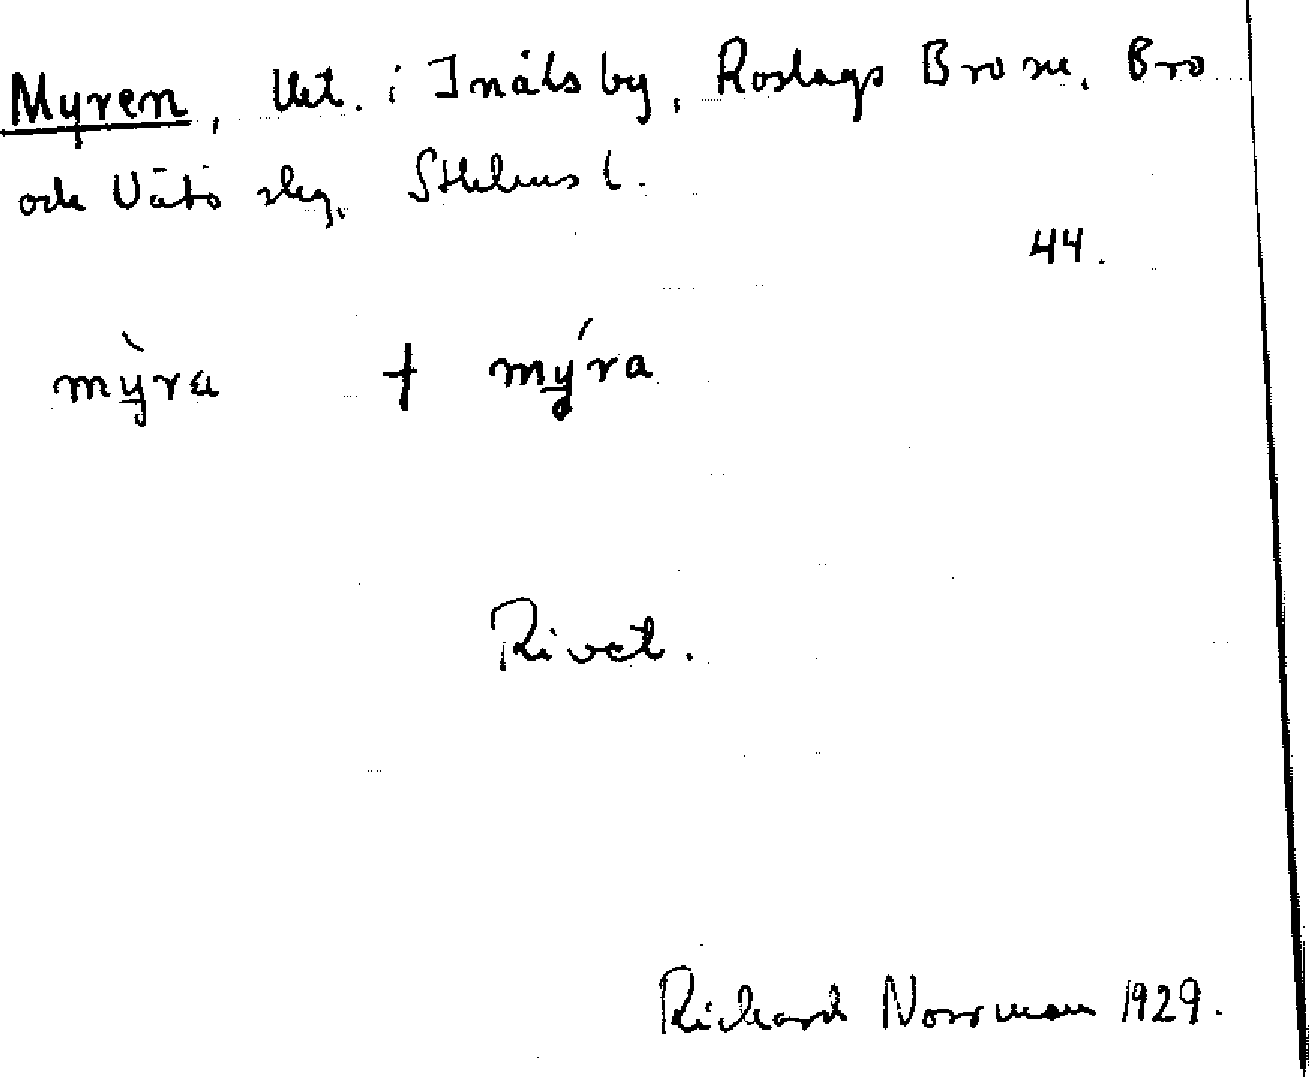 Myren, lht. i Inälsby, Roslags Bro sn. Bro
och Vätö skg, Sthlms l.
44.
mỳra + mýra
Rivet.
Richard Norrman 1929.